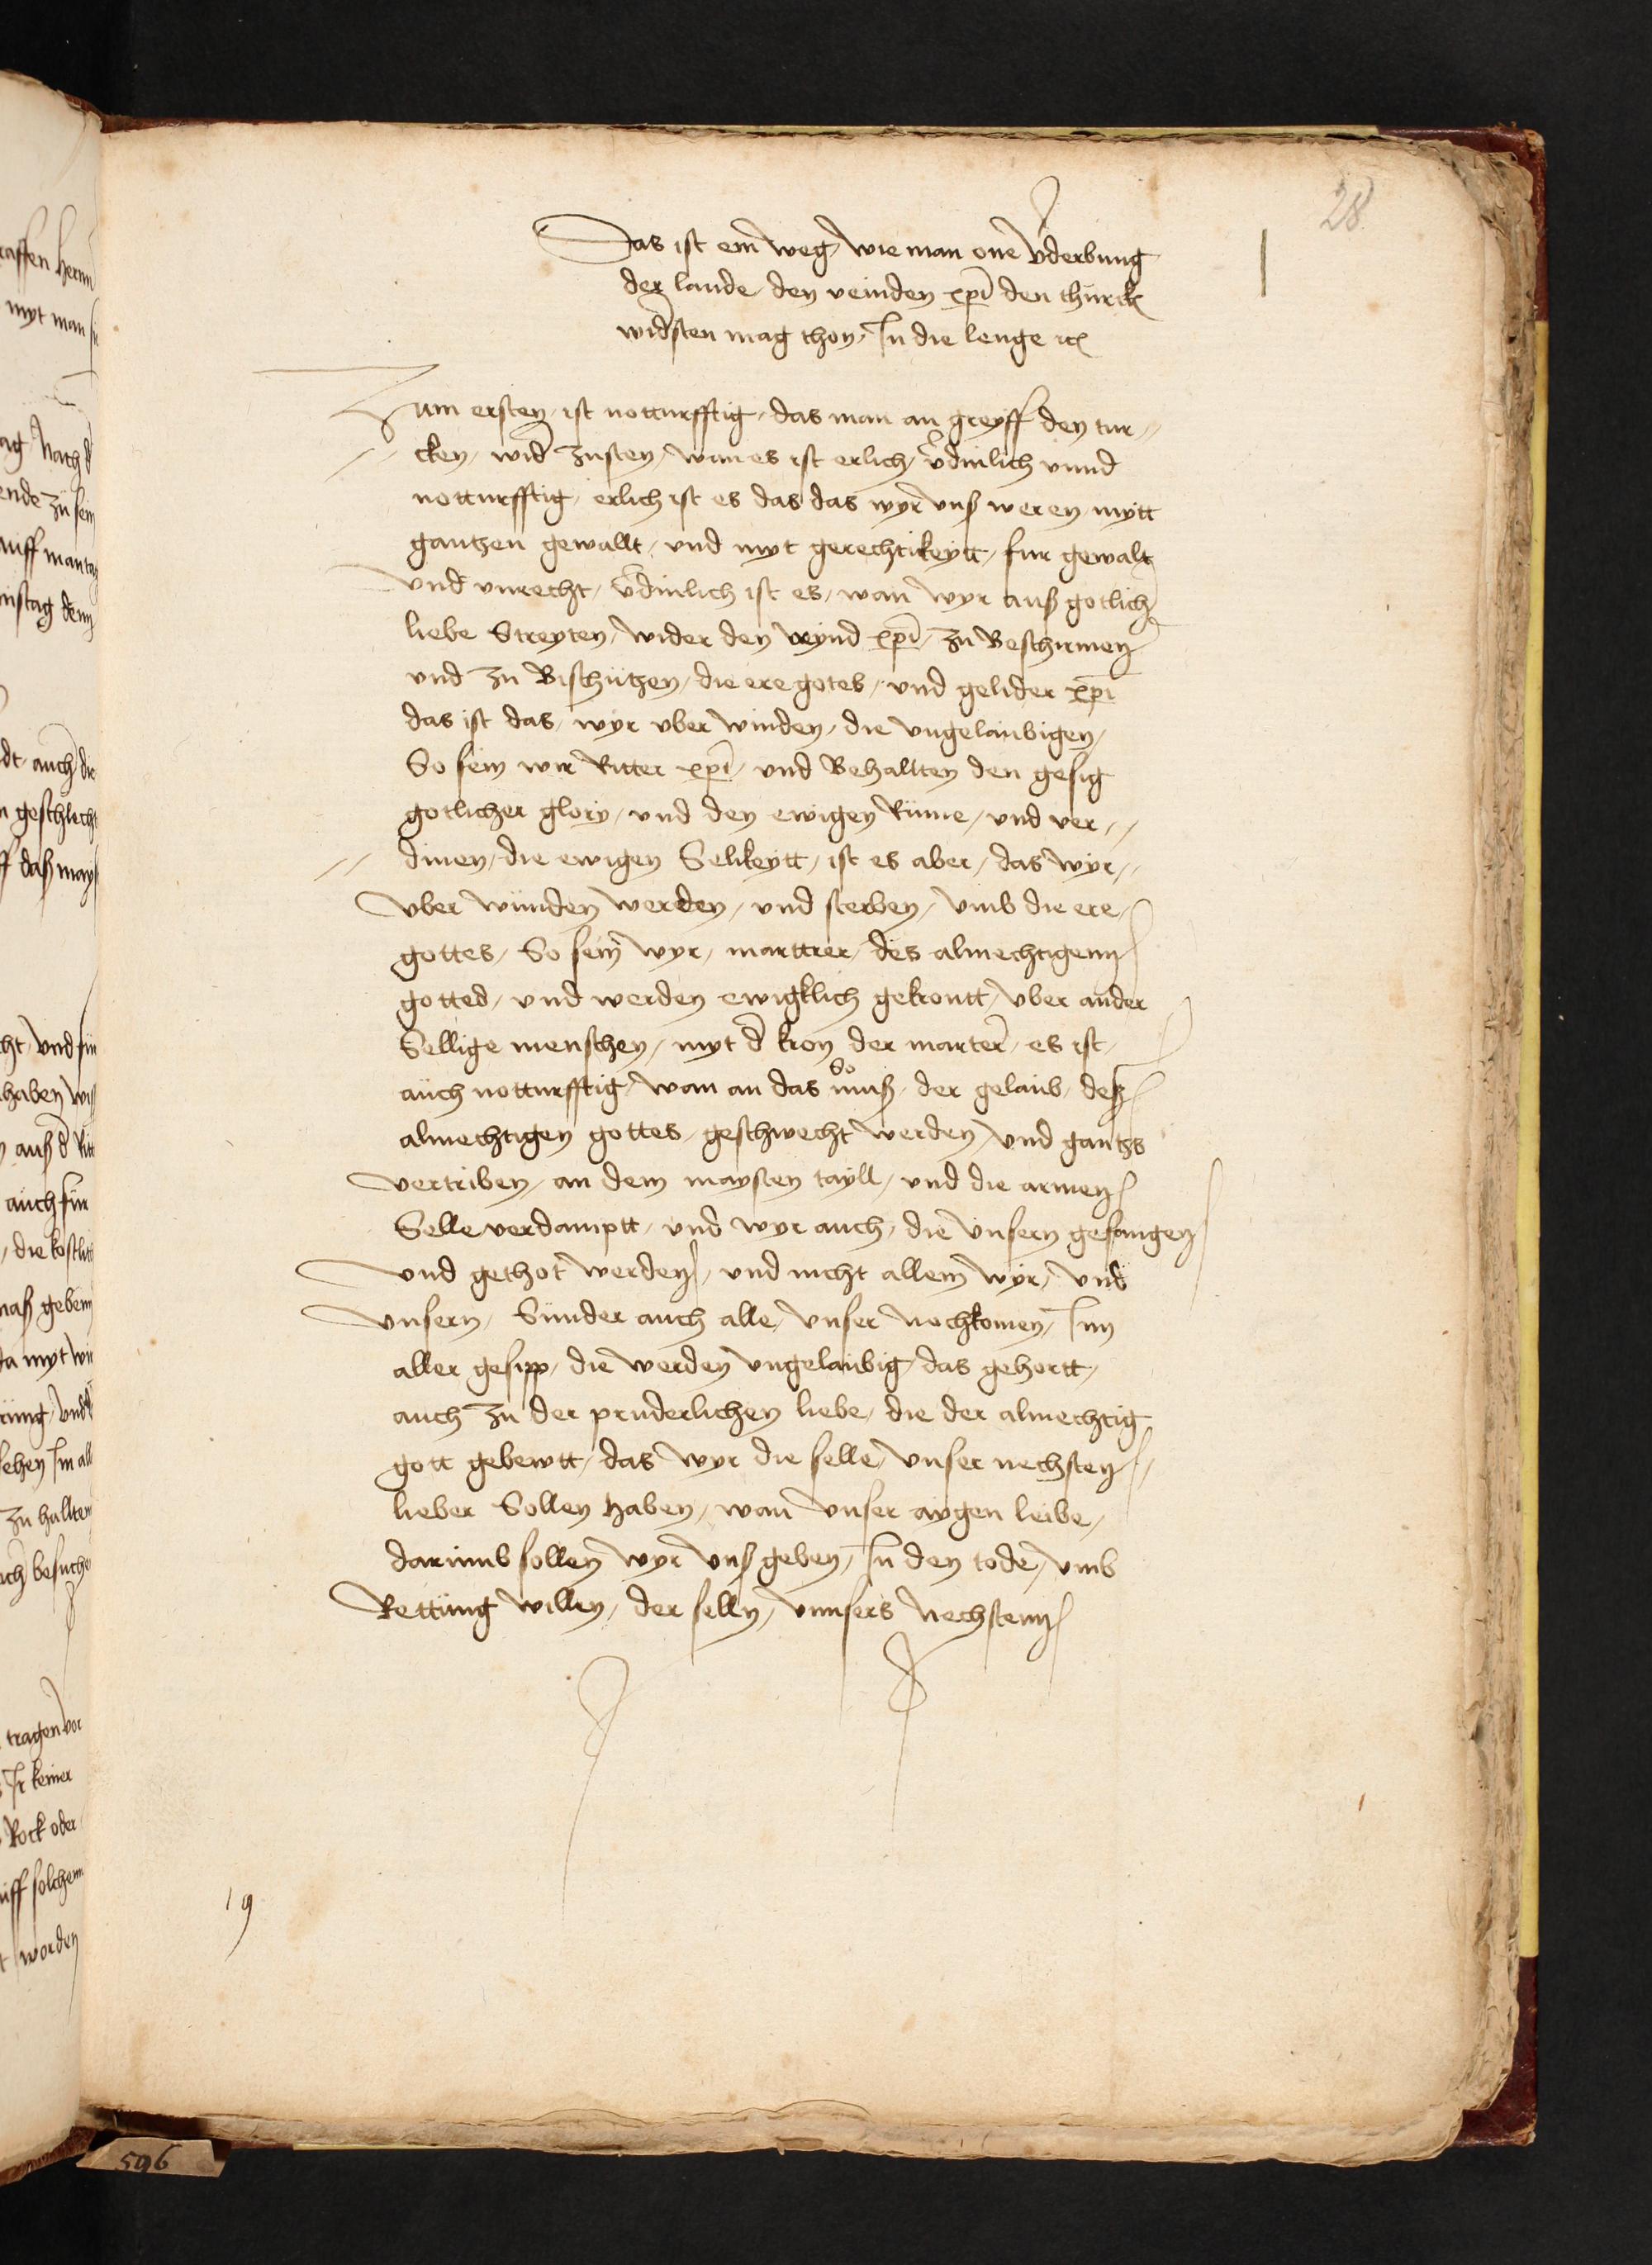 28
Das ist ein weg, wie man one v̄derbung
der lande, den veinden xp̄i den thürck
widsten mag thon, In die lenge ꝛc
Zum ersten, ist notturfftig, das man an greyff den tur„
cken, wid zusten, wan es ist erlich, v̄dinlich vnnd
notturfftig, erlich ist es das das wyr vnß weren mytt
gantzen gewallt, vnd myt gerechtikeytt, fur gewalt
vnd vnrecht, v̄dinlich ist es, wan wyr auß gotlich
liebe Streyten, wider den veynd xp̄i, zu Beschirmen
vnd zu Bischützen, die ere gotes, vnd gelider xp̄i
das ist das, wyr vber winden, die vngelaubigen,
So sein wir Ritter xp̄i, vnd Behallten den gesig
gotlicher glory, vnd den ewigen Rüme, vnd ver„
dinen, die ewigen Selikeytt, ist es aber, das wyr„
vber wunden werden, vnd sterben, vmb die ere,
gottes, So sein wyr, marttrer, des almechtigenn
gottes, vnd werden ewigklich gekrontt, vber ander
Sellige menschen, myt d kron der marter, es ist,
auch notturfftig, wan an das So muß, der gelaub, deß
almechtigen gottes, geschwecht werden, vnd gantzs
vertriben, an dem maysten tayll, vnd die armen
Selle verdamptt, vnd wyr auch, die vnsern gefangen
vnd gethot werden, vnd nicht allein wyr, vnd
vnsern, Sunder auch alle, vnser nochkomen, Inn
aller gesipp, die werden vngelaubig, das gehortt,
auch zu der pruderlichen liebe, die der almechtig
gott gebewtt, das wyr die selle, vnser nechsten„
lieber Sollen haben, wan vnser aygen leibe,
darumb sollen wyr vnß geben, In den tode, vmb
Rettung willen, der selln, vnnsers nechstenn
19
596